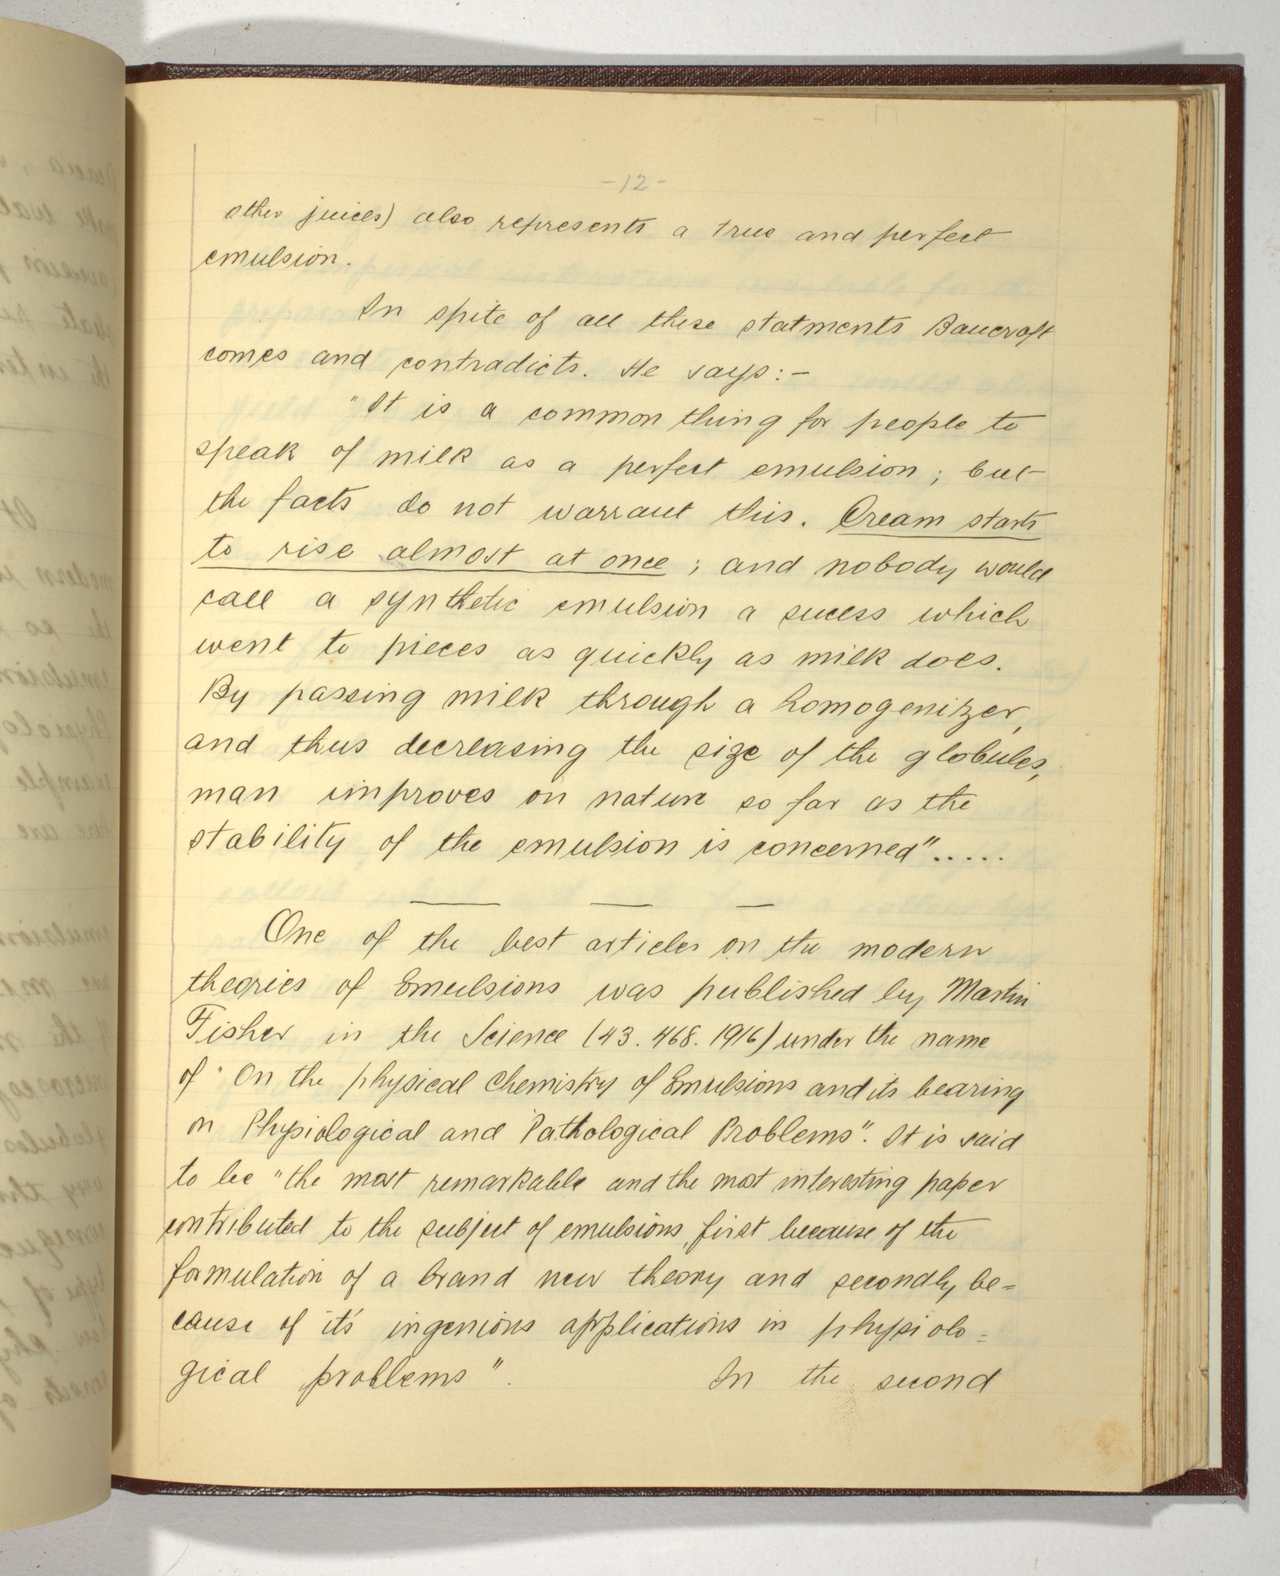 -12-
other juices) also represents a true and perfect
emulsion.
In spite of all these statments Bancroft
comes and contradicts. He says:-
"It is a common thing for people to
speak of milk as a perfect emulsion; but
the facts do not warrant this. Cream starts
to rise almost at once; and nobody would
call a synthetic emulsion a sucess which
went to pieces as quickly as milk does.
By passing milk through a homogenizer,
and thus decreasing the size of the globules,
man improves on nature so far as the
stability of the emulsion is concerned".....
One of the best articles on the modern
theories of Emulsions was published by Martin
Fisher in the Science (43. 468. 1916) under the name
of "On the physical Chemistry of Emulsions and its bearing
on Physiological and Pathological Problems". It is said
to be "the most remarkable and the most interesting paper
contributed to the subject of emulsions, first because of the
formulation of a brand new theory and secondly be=
cause of it's ingenious applications in physiolo=
gical problems". In the second